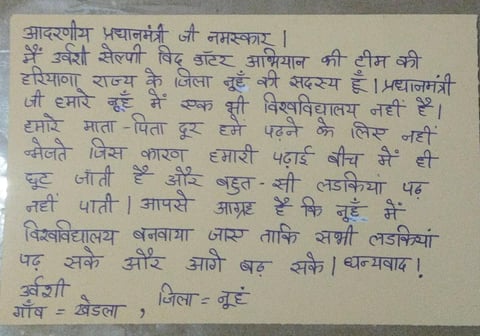 आदरणीय प्रधानमंत्री जी नमस्कार |
मैं उर्वशी सेल्फी विद डॉटर अभियान की टीम की
हरियाणा राज्य के जिला नूहँ की सदस्य हूँ | प्रधानमंत्री
जी हमारे नूहँ में एक भी विश्वविद्यालय नहीं है |
हमारे माता-पिता दूर हमें पढ़ने के लिए नहीं
भेजते जिस कारण हमारी पढ़ाई बीच में ही
छूट जाती है और बहुत-सी लडकियां पढ़
नहीं पाती | आपसे आग्रह है कि नूहँ में
विश्वविद्यालय बनवाया जाए ताकि सभी लडकियां
पढ़ सके और आगे बढ़ सके | धन्यवाद |
उर्वशी
गाँव = खेडला , जिला = नूहं